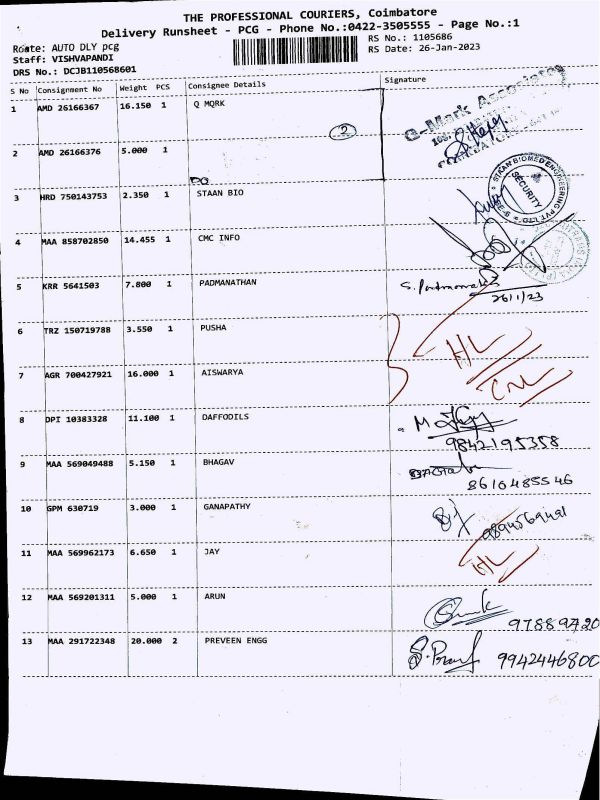 THE PROFESSIONAL COURIERS, Coimbatore
Delivery Runsheet - PCG - Phone No.:0422-3505555 - Page No.:1
Route: AUTO DLY pcg
RS No.: 1105686
Staff: VISHVAPANDI
RS Date: 26-Jan-2023
DRS No.: DCJB110568601
S No Consignment No Weight PCS Consignee Details Signature
1 AMD 26166367 16.150 1 Q MQRK
2
2 AMD 26166376 5.000 1
3 HRD 750143753 2.350 1 STAAN BIO
STAAN BIOMED ENGINEERING PVT LTD
SECURITY
4 MAA 858702850 14.455 1 CMC INFO
5 KRR 5641503 7.800 1 PADMANATHAN
26/1/23
6 TRZ 150719788 3.550 1 PUSHA
HL
7 AGR 700427921 16.000 1 AISWARYA
8 DPI 10383328 11.100 1 DAFFODILS
9842195358
9 MAA 569049488 5.150 1 BHAGAV
8610485546
10 GPM 630719 3.000 1 GANAPATHY
9894569491
11 MAA 569962173 6.650 1 JAY
HL
12 MAA 569201311 5.000 1 ARUN
97889420
13 MAA 291722348 20.000 2 PREVEEN ENGG
9942446800